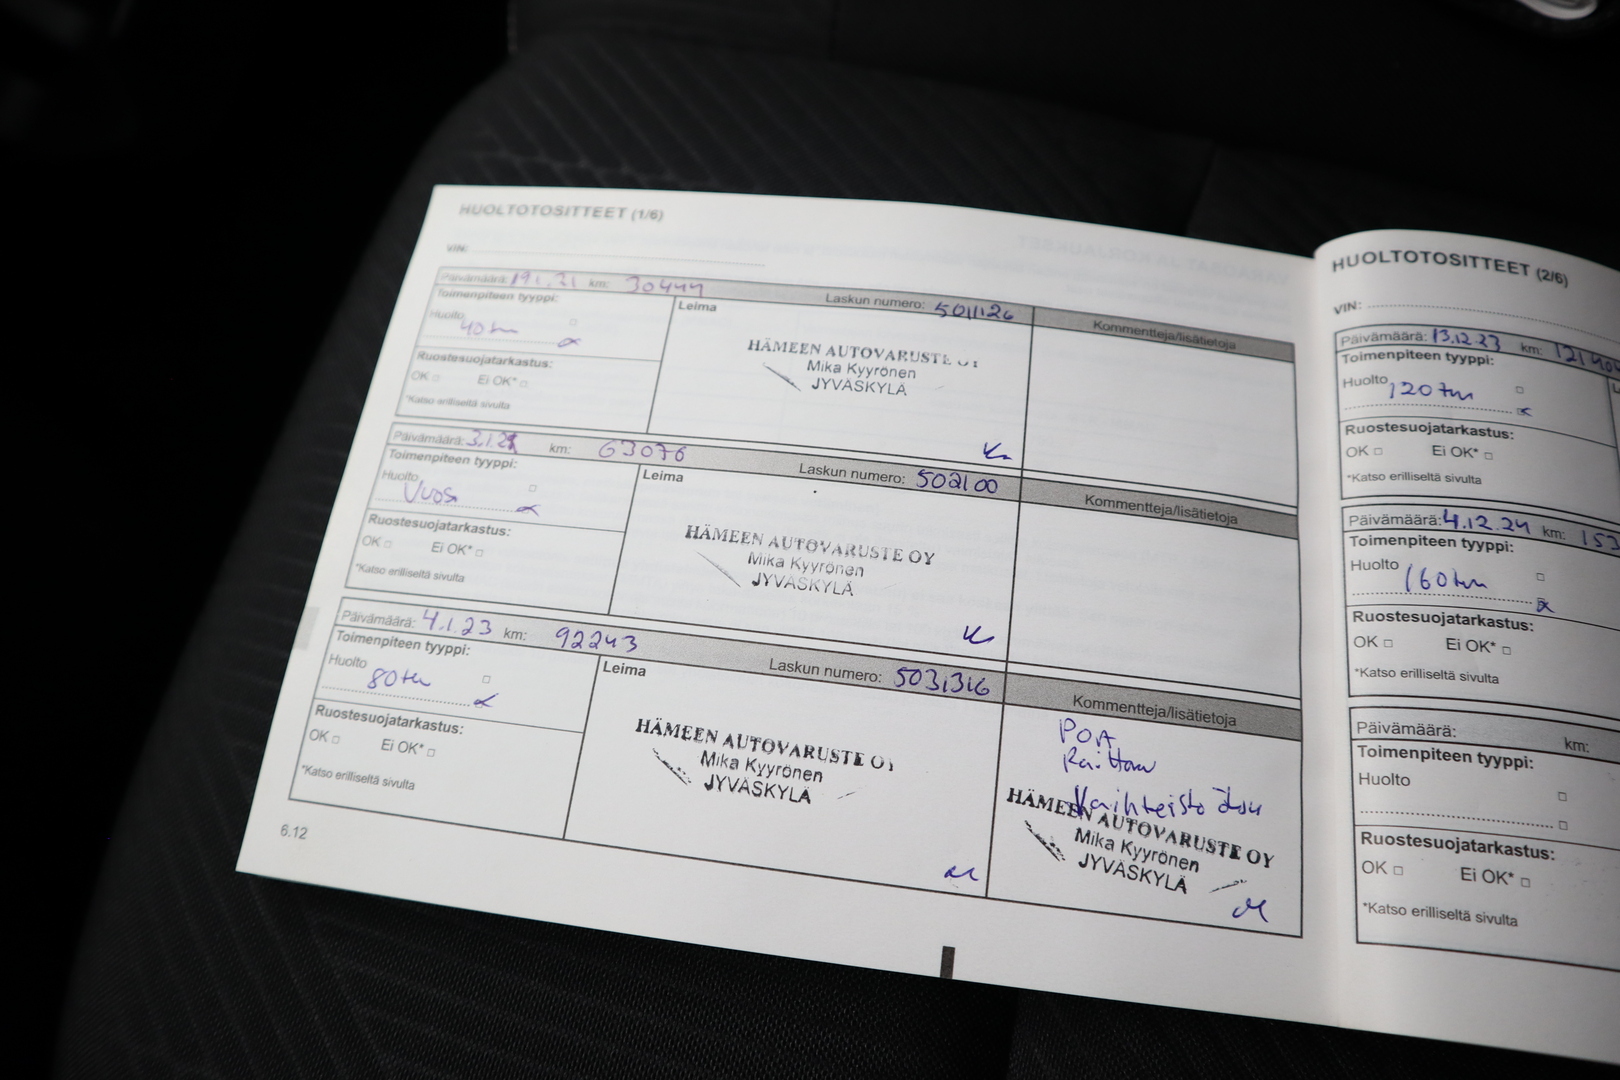 HUOLTOTOSITTEET (1/6)
VIN:
Päivämäärä: 19.1.21 km: 30444 Laskun numero: 501126 Kommentteja/lisätietoja
Toimenpiteen tyyppi: Leima
Huolto
40tm
HÄMEEN AUTOVARUSTE OY
Mika Kyyrönen
JYVÄSKYLÄ
Ruostesuojatarkastus:
OK Ei OK*
*Katso erilliseltä sivulta
Päivämäärä: 3.1. km: 63076 Laskun numero: 502100 Kommentteja/lisätietoja
Toimenpiteen tyyppi: Leima
Huolto
Vuosi
HÄMEEN AUTOVARUSTE OY
Mika Kyyrönen
JYVÄSKYLÄ
Ruostesuojatarkastus:
OK Ei OK*
*Katso erilliseltä sivulta
Päivämäärä: 4.1.23 km: 92243 Laskun numero: 503,316 Kommentteja/lisätietoja
Toimenpiteen tyyppi: Leima
Huolto
80tm
HÄMEEN AUTOVARUSTE OY
Mika Kyyrönen
JYVÄSKYLÄ
Ruostesuojatarkastus:
OK Ei OK*
*Katso erilliseltä sivulta
POA
Vaihteisto
HÄMEEN AUTOVARUSTE OY
Mika Kyyrönen
JYVÄSKYLÄ
6.12
HUOLTOTOSITTEET (2/6)
VIN:
Päivämäärä: 13.12.23 km:
Toimenpiteen tyyppi:
Huolto
120tm
Ruostesuojatarkastus:
OK Ei OK*
*Katso erilliseltä sivulta
Päivämäärä: 4.12.24 km:
Toimenpiteen tyyppi:
Huolto
160tm
Ruostesuojatarkastus:
OK Ei OK*
*Katso erilliseltä sivulta
Päivämäärä: km:
Toimenpiteen tyyppi:
Huolto
Ruostesuojatarkastus:
OK Ei OK*
*Katso erilliseltä sivulta